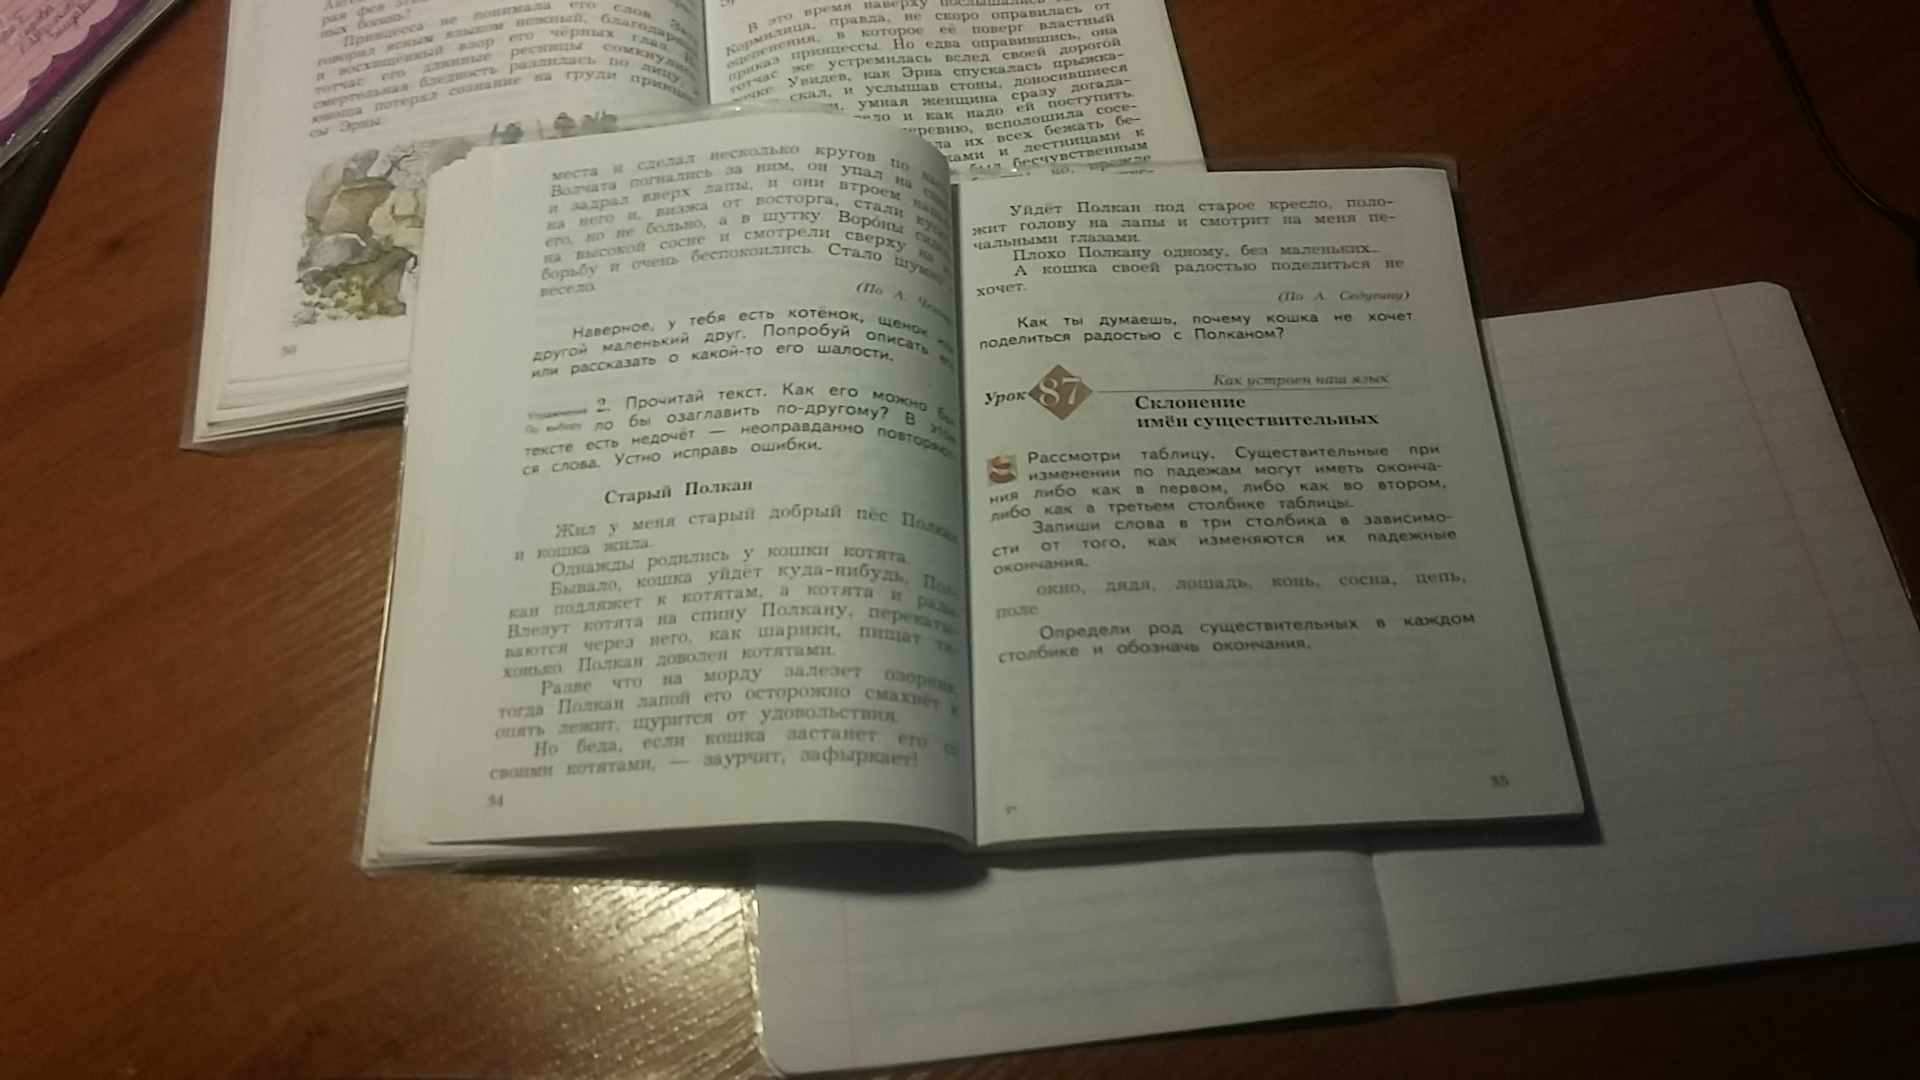 рая фея
ных богинь?
Принцесса не понимала его слов. Зато
говорил ясным языком нежный, благодарный
и восхищённый взор его чёрных глаз.
тотчас его длинные ресницы сомкнулись,
смертельная бледность разлилась по лицу, и
юноша потерял сознание на груди принцес-
сы Эрны.
50
В это время наверху послышались
Кормилица, правда, не скоро оправилась от
оцепенения, в которое её поверг властный
приказ принцессы. Но едва оправившись, она
тотчас же устремилась вслед своей дорогой
Увидев, как Эрна спускалась прыжка-
скал, и услышав стоны, доносившиеся
умная женщина сразу догада-
дело и как надо ей поступить.
деревню, всполошила сосе-
их всех бежать бе-
и лестницами к
был бесчувственным
но, прежде
места и сделал несколько кругов по
Волчата погнались за ним, он упал на спину
и задрал вверх лапы, и они втроем напали
на него и, визжа от восторга, стали кусать
его, но не больно, а в шутку. Воро́ны сидели
на высокой сосне и смотрели сверху на их
борьбу и очень беспокоились. Стало шумно и
весело.
(По А. Чехову)
Наверное, у тебя есть котёнок, щенок или
другой маленький друг. Попробуй описать его
или рассказать о какой-то его шалости.
Упражнение 2. Прочитай текст. Как его можно бы-
По выбору ло бы озаглавить по-другому? В этом
тексте есть недочёт — неоправданно повторяют-
ся слова. Устно исправь ошибки.
Старый Полкан
Жил у меня старый добрый пёс Полкан
и кошка жила.
Однажды родились у кошки котята.
Бывало, кошка уйдёт куда-нибудь, Пол-
кан подляжет к котятам, а котята и рады.
Влезут котята на спину Полкану, перекаты-
ваются через него, как шарики, пищат ти-
хонько. Полкан доволен котятами.
Разве что на морду залезет озорник,
тогда Полкан лапой его осторожно смахнёт и
опять лежит, щурится от удовольствия.
Но беда, если кошка застанет его со
своими котятами, — заурчит, зафыркает!
34
Уйдёт Полкан под старое кресло, поло-
жит голову на лапы и смотрит на меня пе-
чальными глазами.
Плохо Полкану одному, без маленьких...
А кошка своей радостью поделиться не
хочет.
(По А. Седугину)
Как ты думаешь, почему кошка не хочет
поделиться радостью с Полканом?
Урок 87
Как устроен наш язык
Склонение
имён существительных
Рассмотри таблицу. Существительные при
изменении по падежам могут иметь оконча-
ния либо как в первом, либо как во втором,
либо как в третьем столбике таблицы.
Запиши слова в три столбика в зависимо-
сти от того, как изменяются их падежные
окончания.
окно, дядя, лошадь, конь, сосна, цепь,
поле
Определи род существительных в каждом
столбике и обозначь окончания.
35